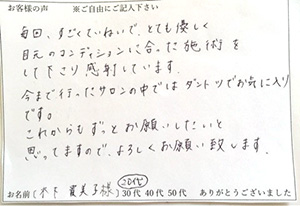 お客様の声 ※ご自由にご記入下さい
毎回、すごくていねいで、とても優しく
目元のコンディションに合った施術を
して下さり感謝しています。
今まで行ったサロンの中ではダントツでお気に入り
です。
これからもずっとお願いしたいと
思ってますので、よろしくお願い致します。
お名前(木下 貴美子様) 20代 30代 40代 50代 ありがとうございました